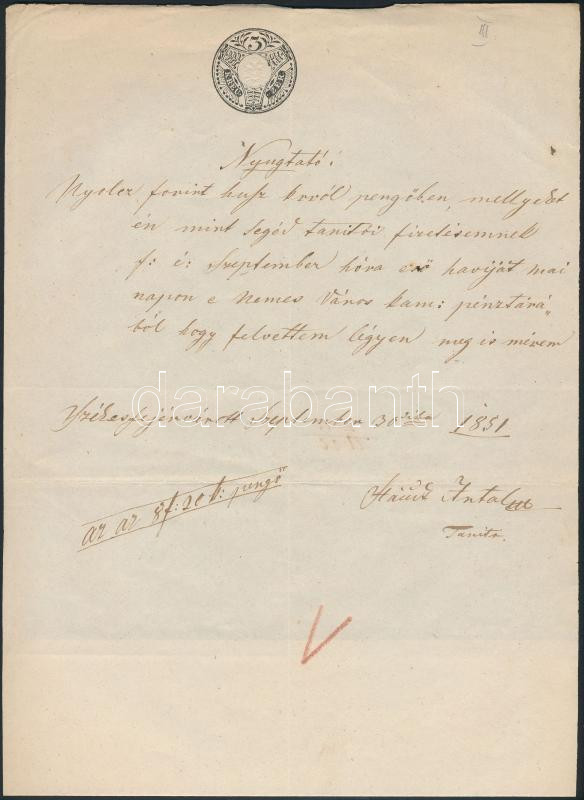 III
3
Nyugtató:
Nyolcz forint husz krról pengőben, mellyeket
én mint segéd tanitói fizetésemnek
f: é: Szeptember hóra eső haviját mai
napon e Nemes Város kam: pénztárá„
ból hogy felvettem légyen meg is mérem
Székesfejérvárott Szeptember 30 1851
az az 8f: 20 k: pengő
Antal
Tanito.
darabanth